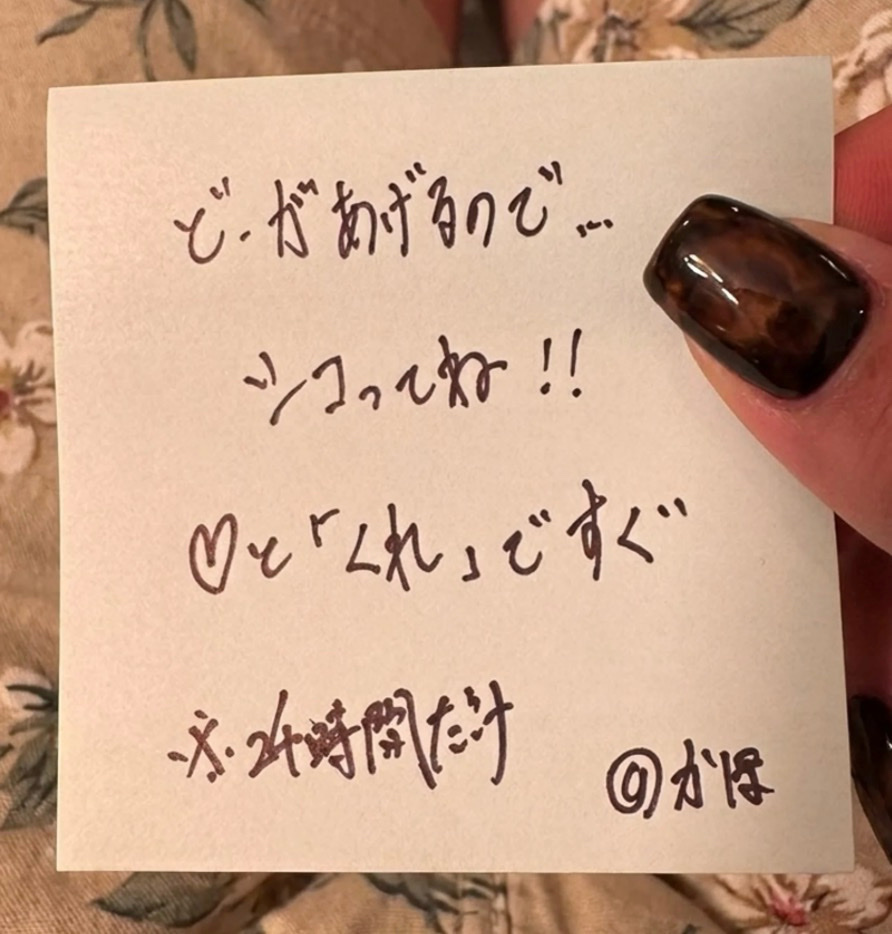 ど.があげるので…
シコってね!!
♡と「くれ」ですぐ
※24時間だけ
@かほ